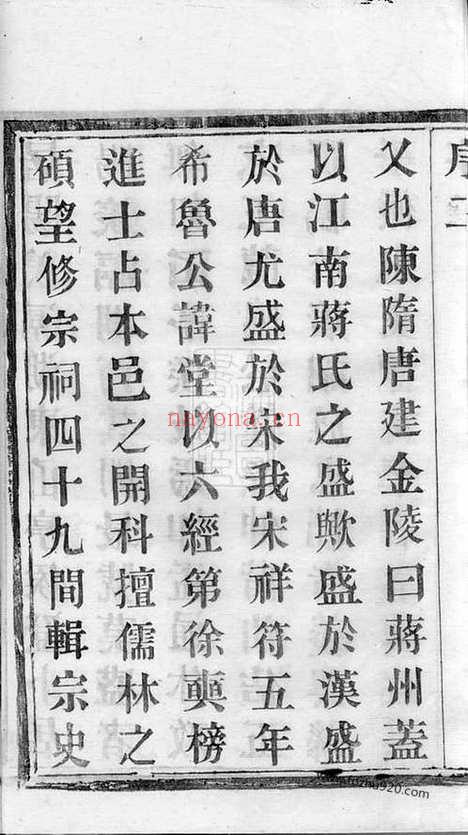 序二
乂也陳隋唐建金陵曰蔣州蓋
以江南蔣氏之盛歟盛於漢盛
於唐尤盛於宋我宋祥符五年
希魯公諱堂以六經第徐奭榜
進士占本邑之開科擅儒林之
碩望修宗祠四十九間輯宗史
nayona.cn